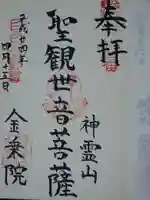 奉拝
神霊山
聖観世音菩薩
金乗院
平成廿四年
四月十三日